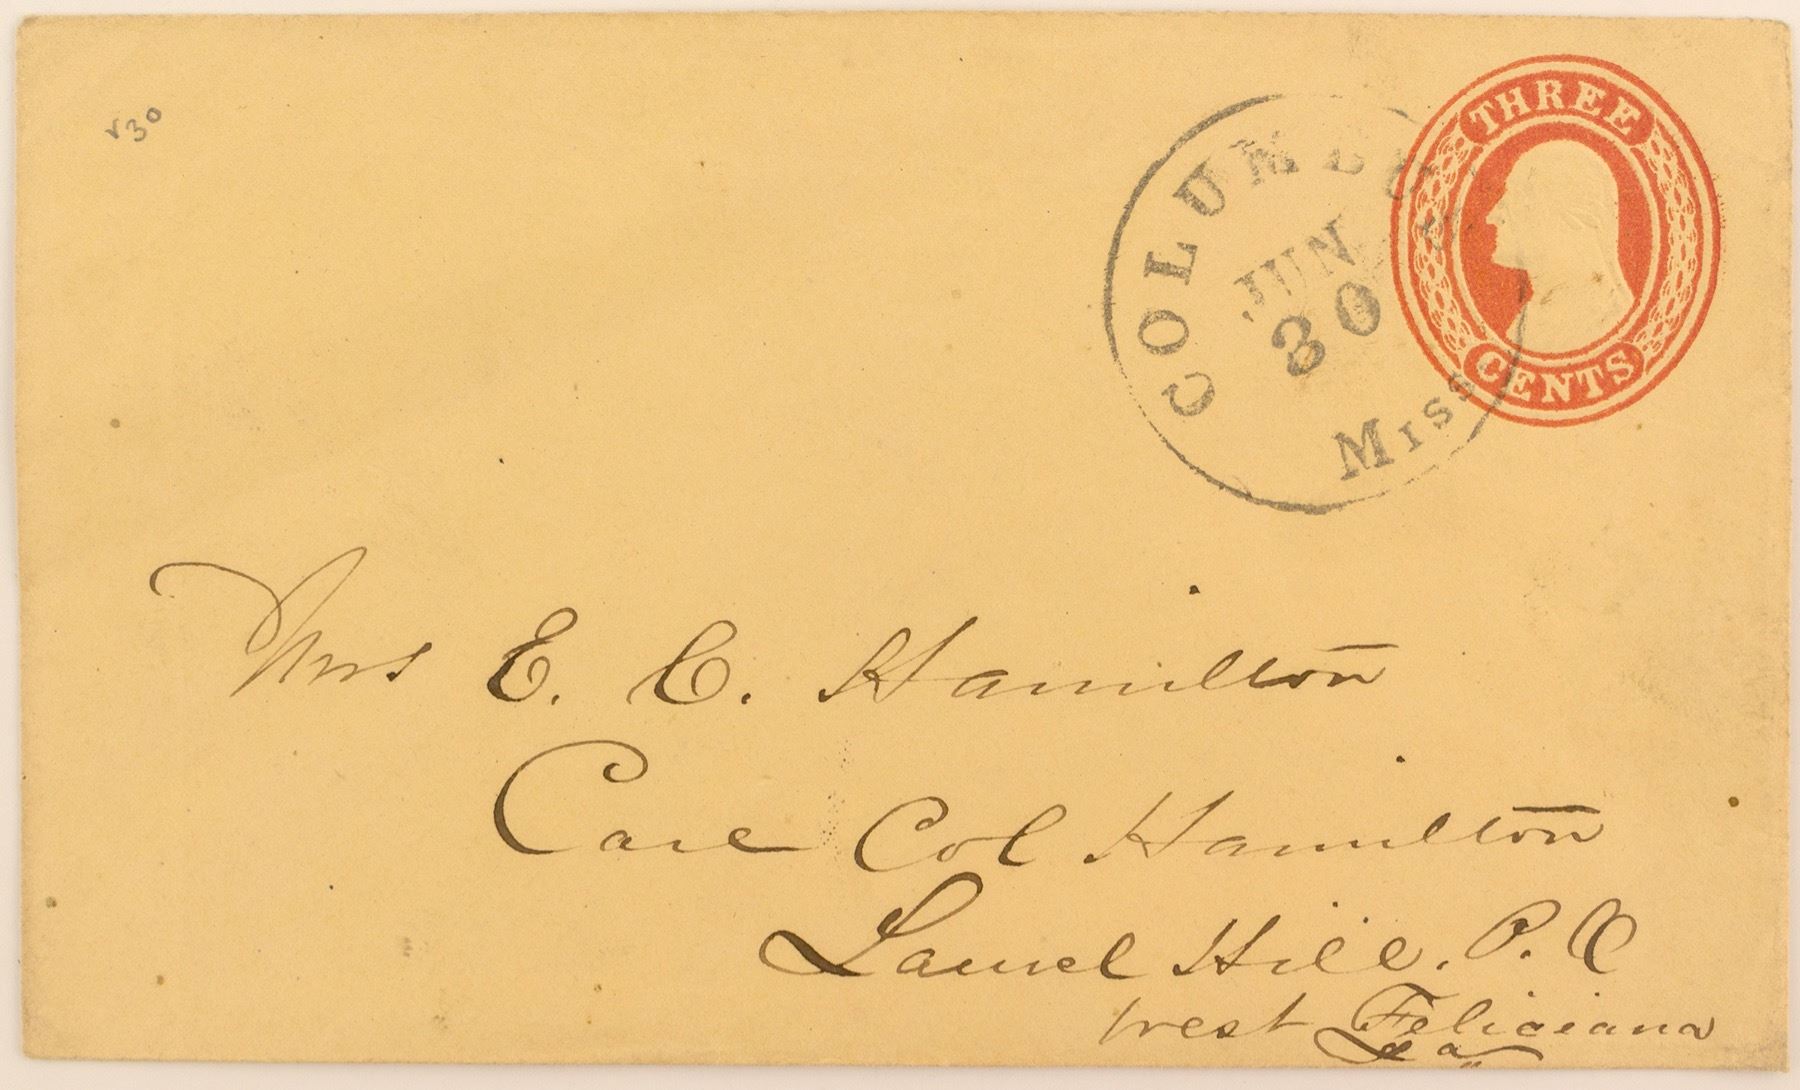 v30
COLUMBUS
JUN
30
MISS
THREE
CENTS
Mrs E. C. Hamilton
Care Col Hamilton
Laurel Hill. P. O
West Feliciana
La